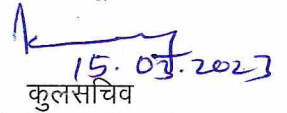 15.03.2023
कुलसचिव